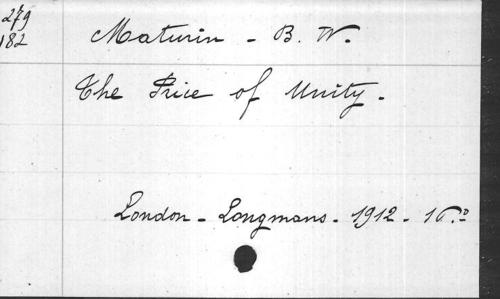 279
182
Maturin - B. W.
The Price of Unity.
London - Longmans - 1912 - 16.º